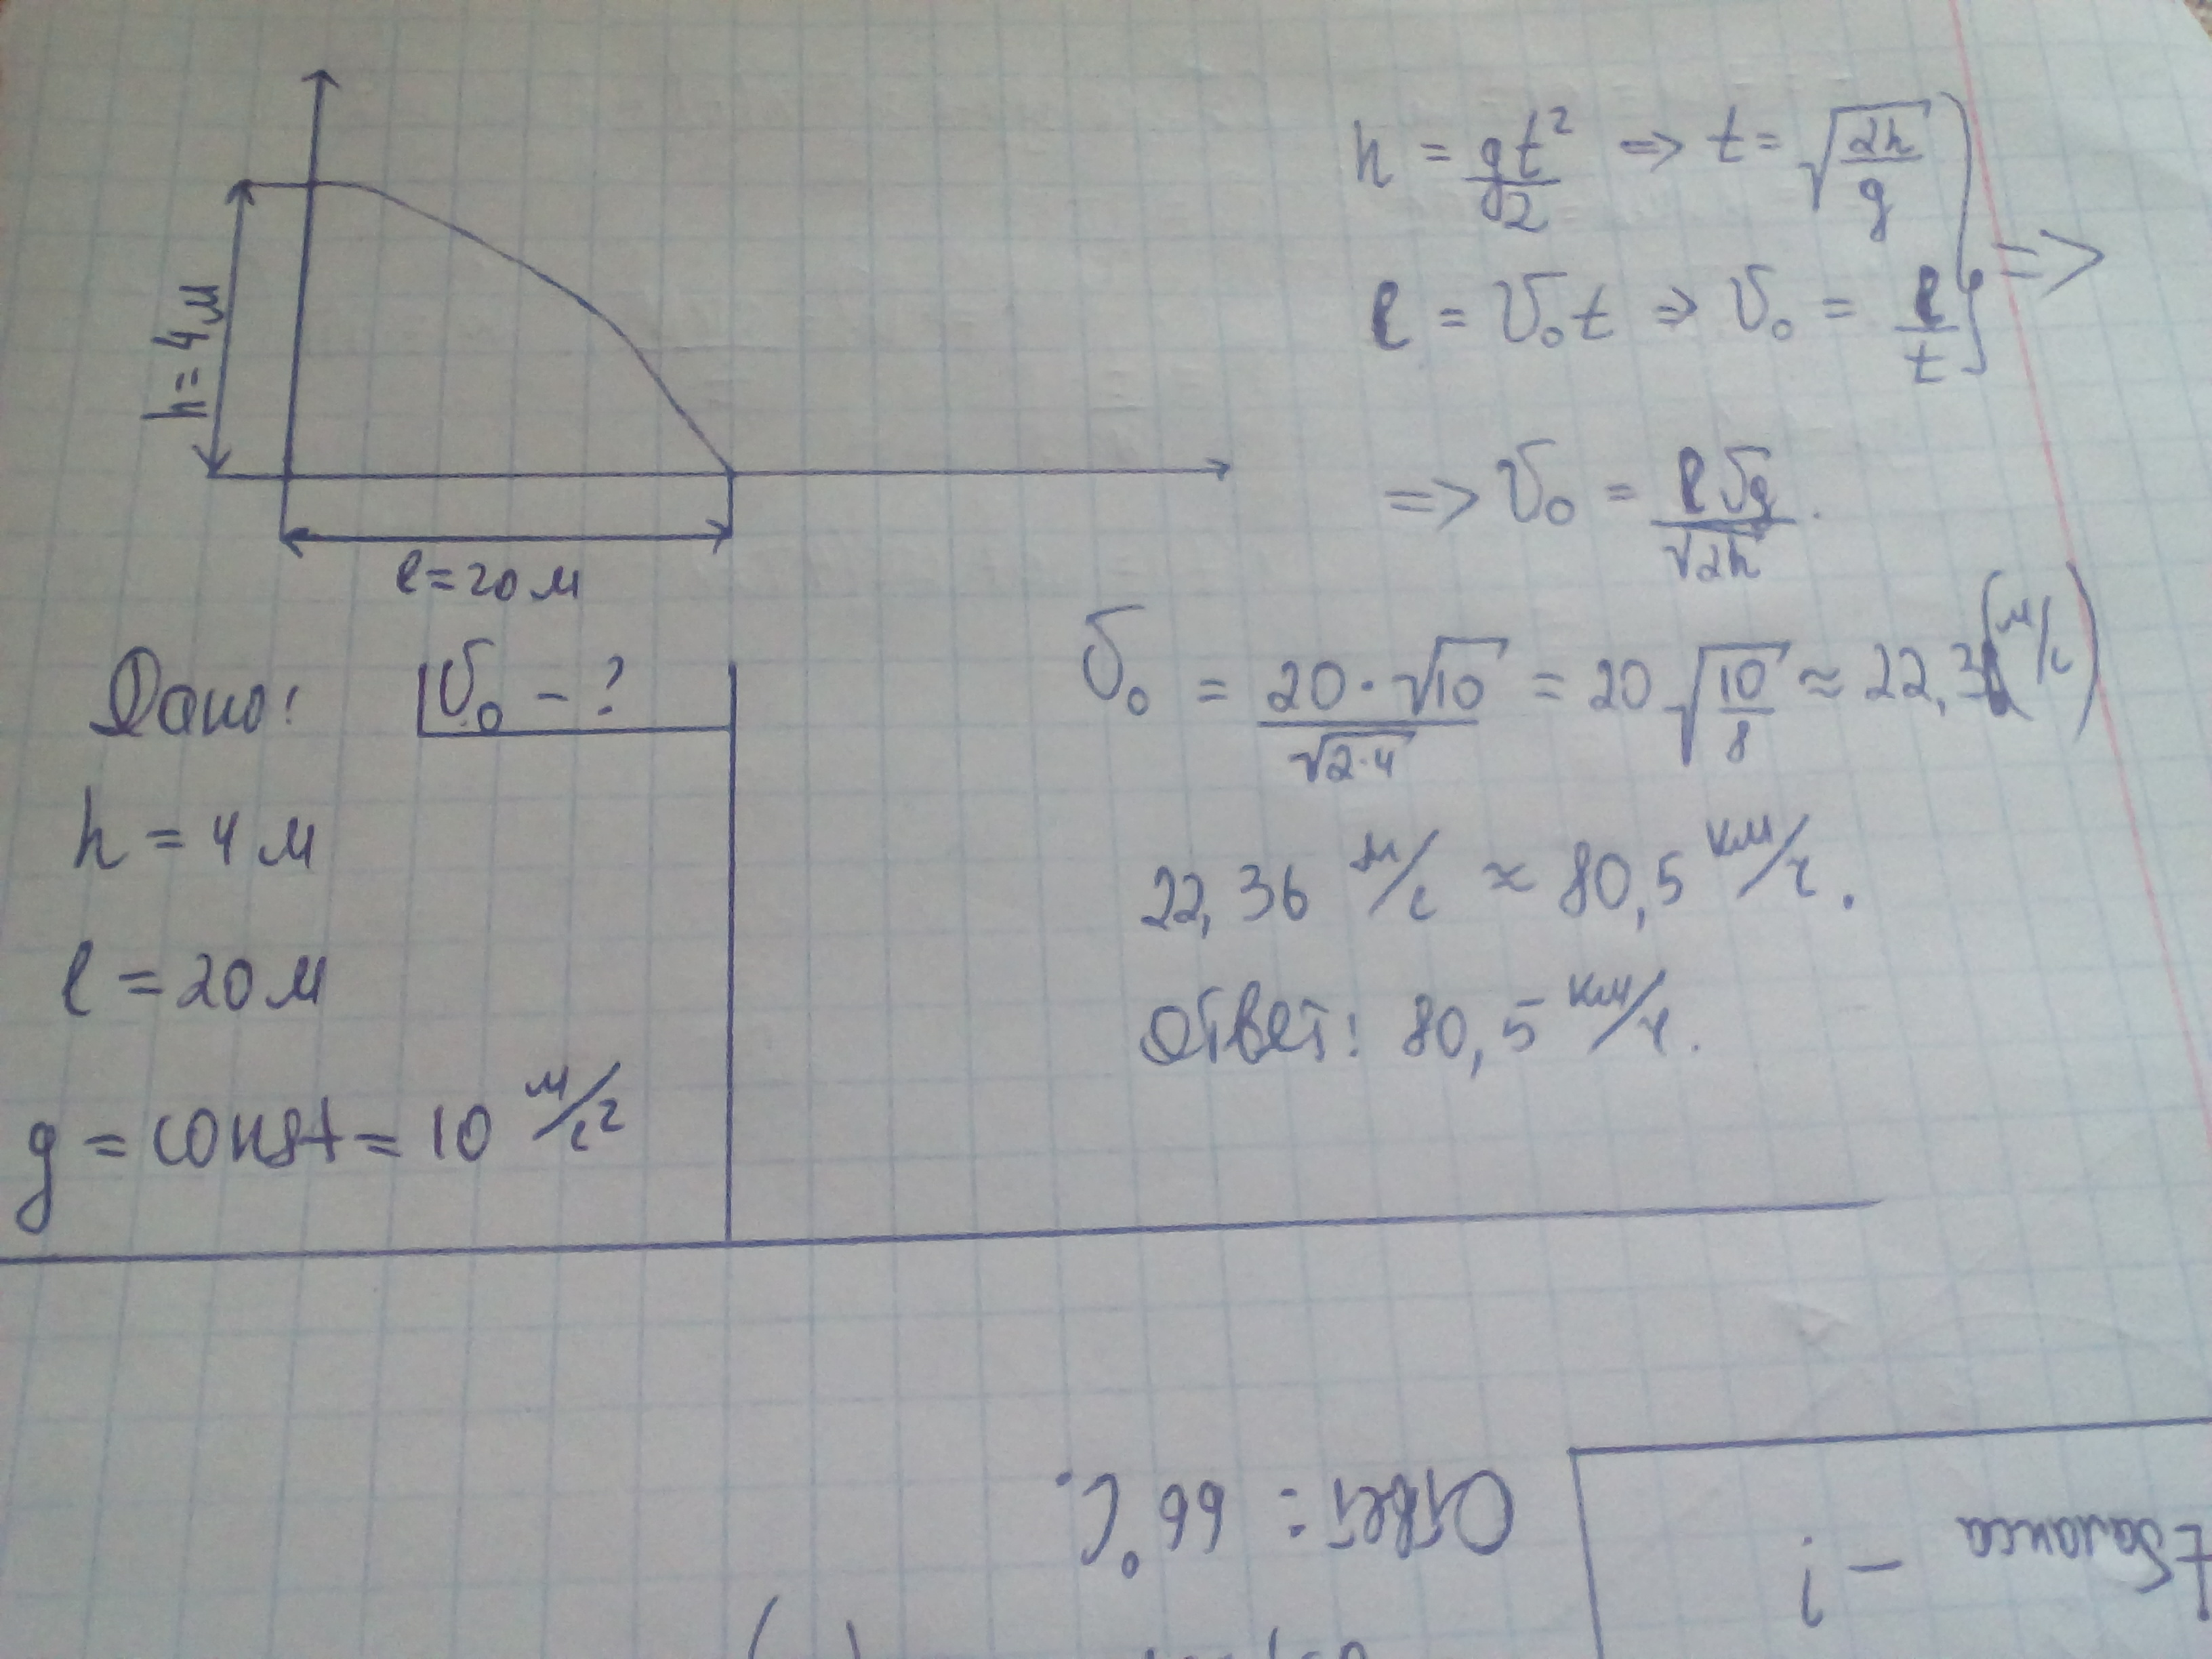 h = 4 м
l = 20 м
Дано: v₀ - ?
h = 4 м
l = 20 м
g = const = 10 м/с²
h = gt²/2 => t = √(2h/g)
l = v₀t => v₀ = l/t } =>
=> v₀ = l√g/√2h .
v₀ = 20·√10/√2·4 = 20√(10/8) ≈ 22,3 (м/с)
22,36 м/с ≈ 80,5 км/ч.
Ответ: 80,5 км/ч.
tбаланса - ?
Ответ: 66°C.